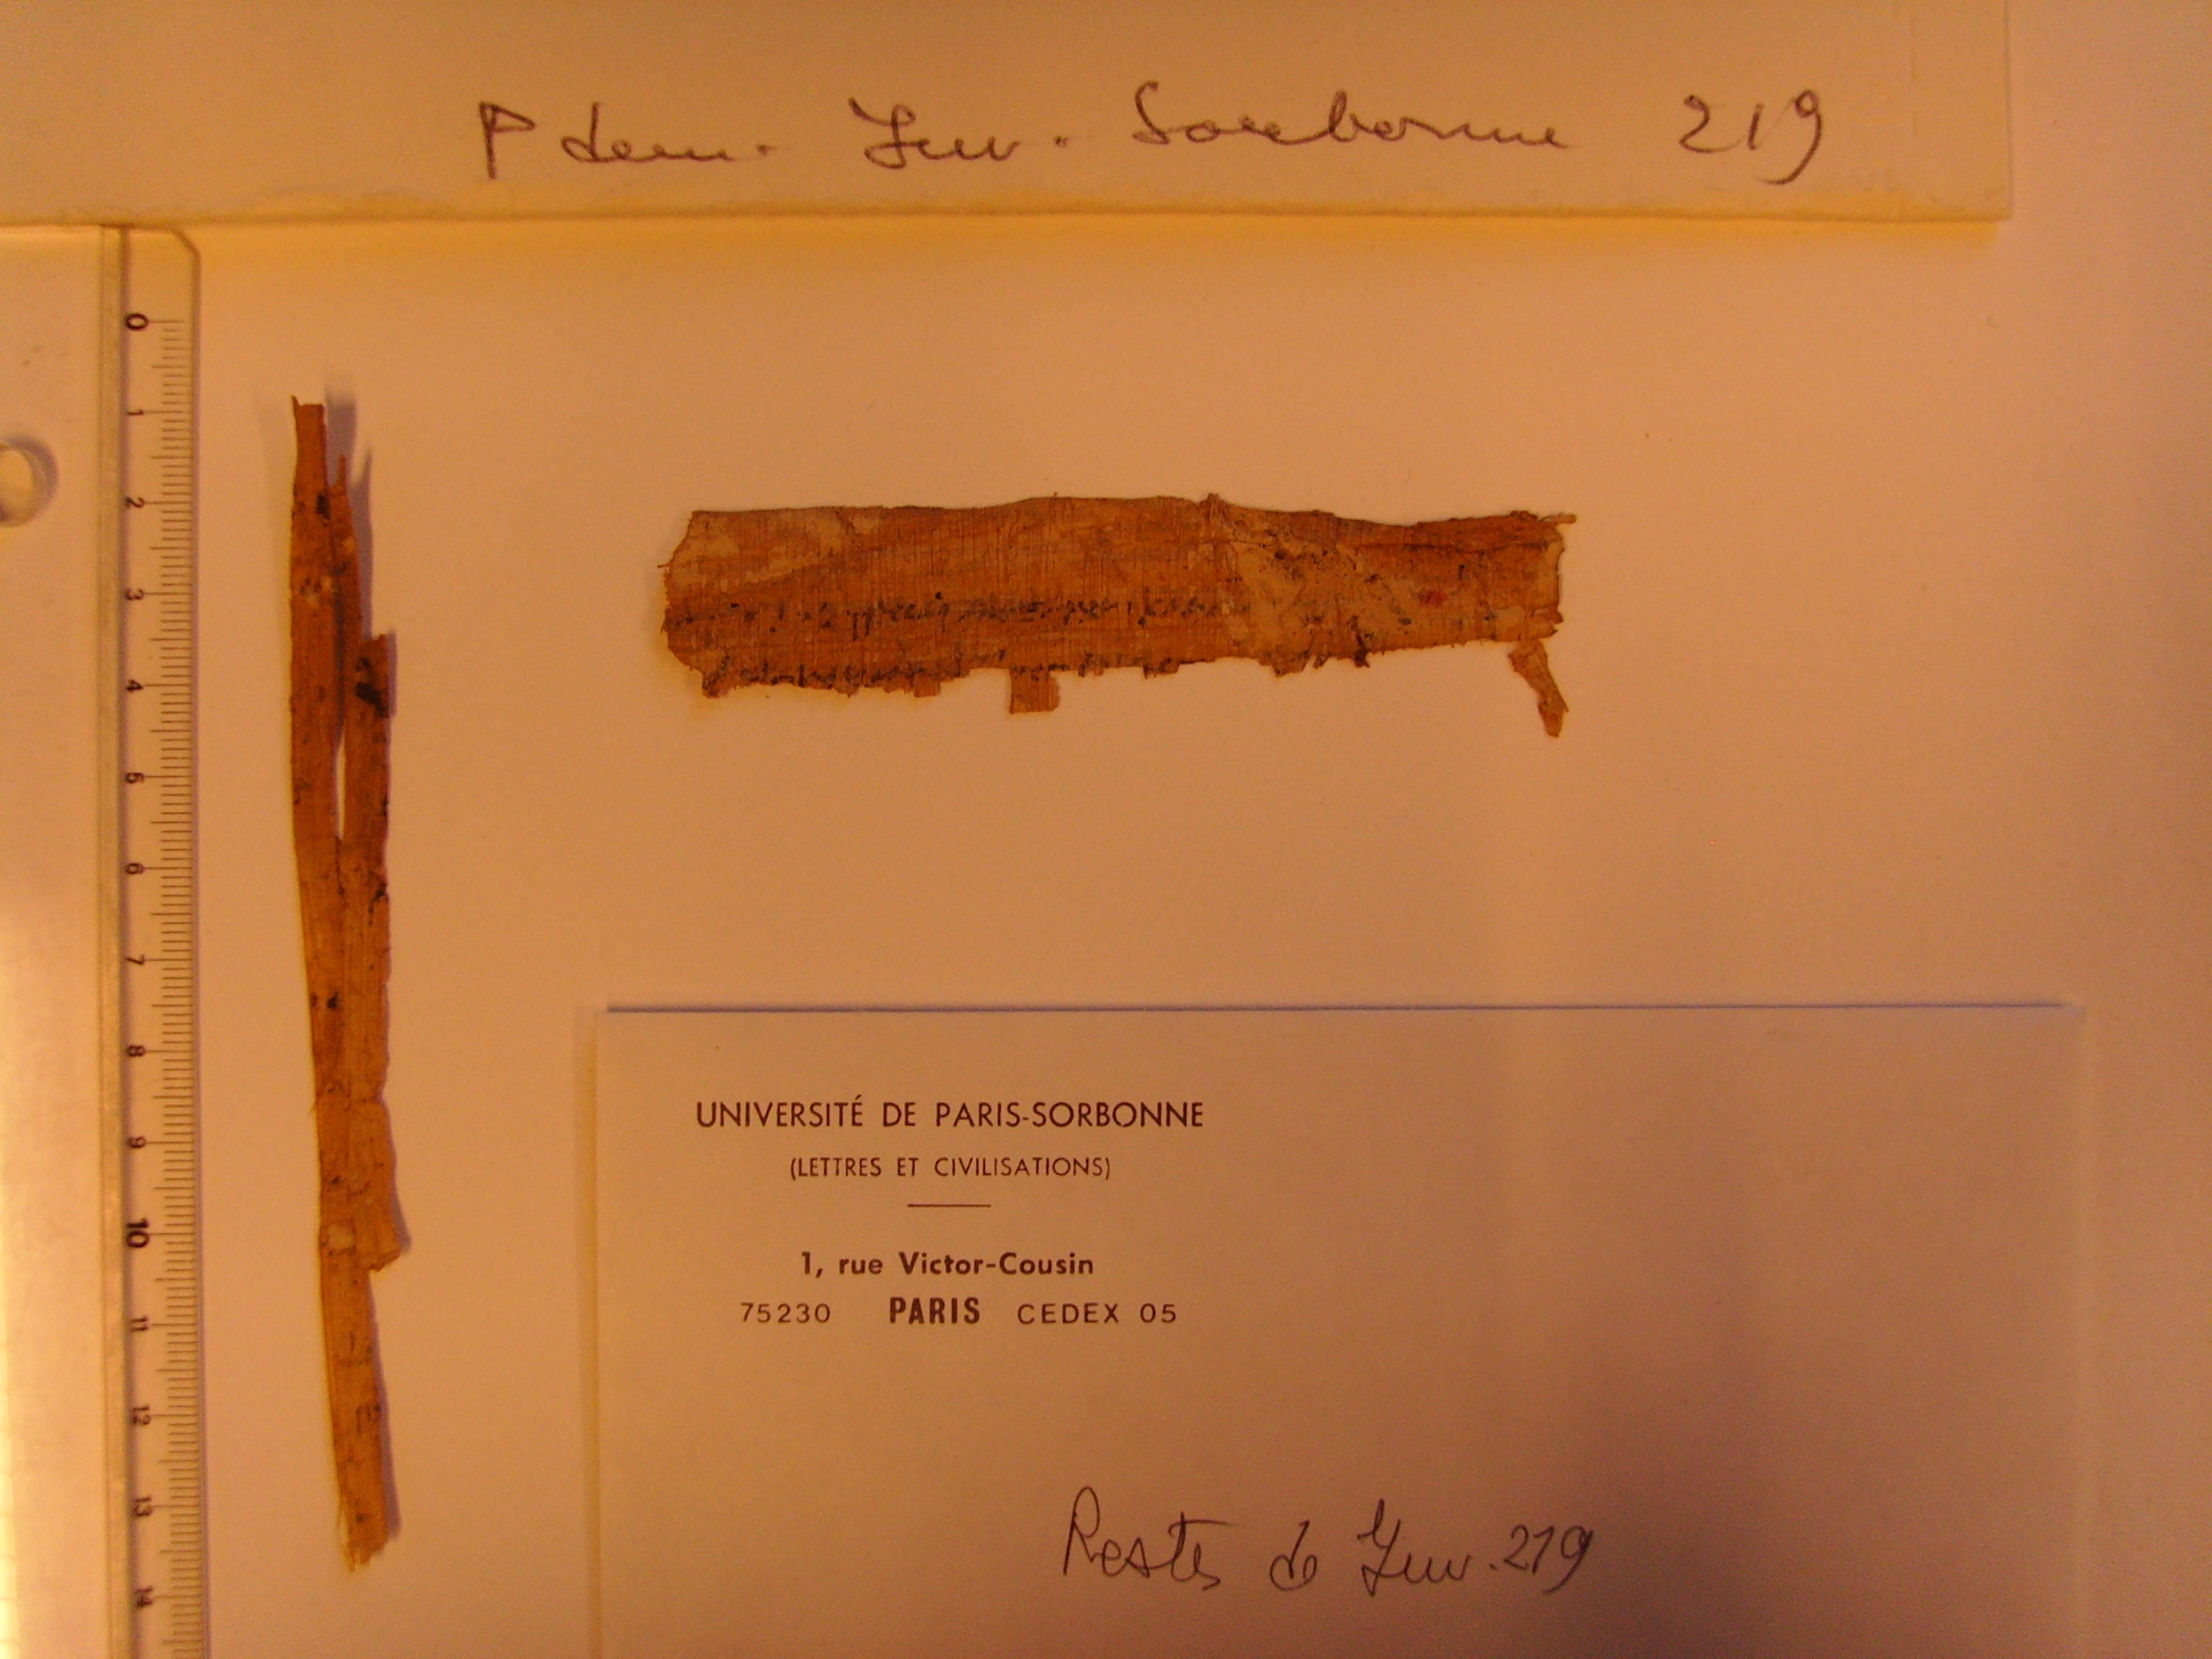 P dem. Inv. Sorbonne 219
0
1
2
3
4
5
6
7
8
9
10
11
12
13
14
UNIVERSITÉ DE PARIS-SORBONNE
(LETTRES ET CIVILISATIONS)
1, rue Victor-Cousin
75230 PARIS CEDEX 05
Restes de Inv. 219